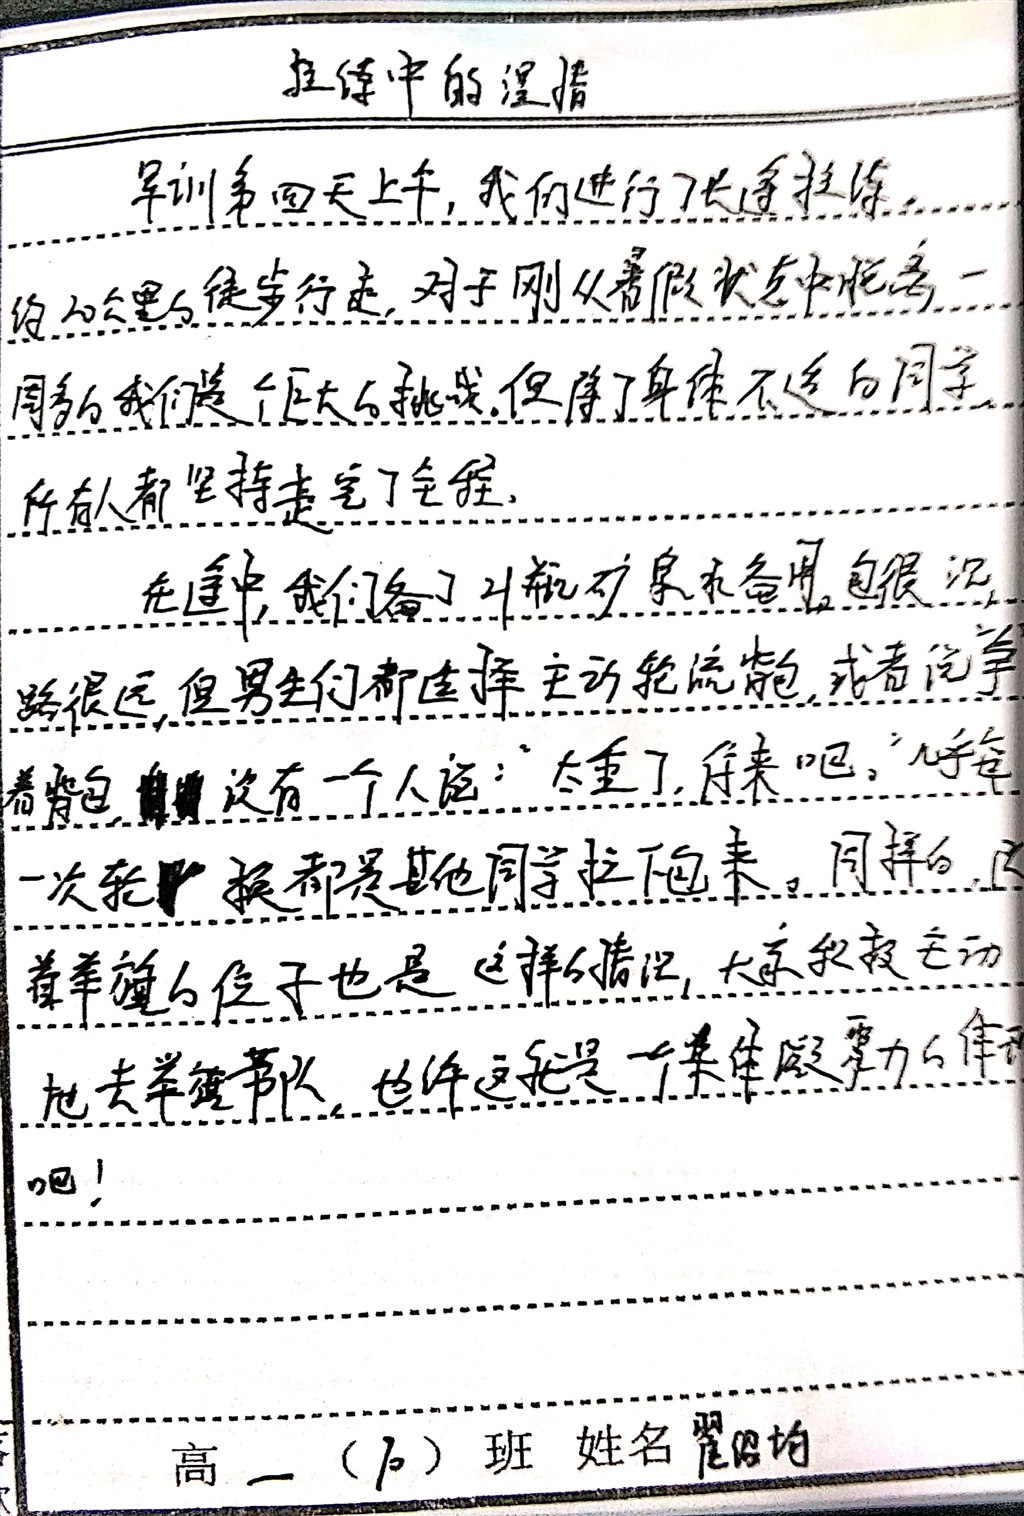 拉练中的温情
军训第四天上午，我们进行了长途拉练，
约20公里的徒步行走，对于刚从暑假状态中脱离一
周多的我们是个巨大的挑战。但除了身体不适的同学，
所有人都坚持走完了全程。
在途中，我们备了24瓶矿泉水备用，包很沉，
路很远，但男生们都选择主动轮流背包，或者说“拿
着背包，没有一个人说：“太重了，你来吧。”几乎每
一次轮换都是其他同学拉下包来。同样的，
着举旗的位子也是这样的情况，大家积极主动
地去举旗带队，也许这就是一个集体凝聚力的体现
吧！
高一（10）班 姓名翟绍均